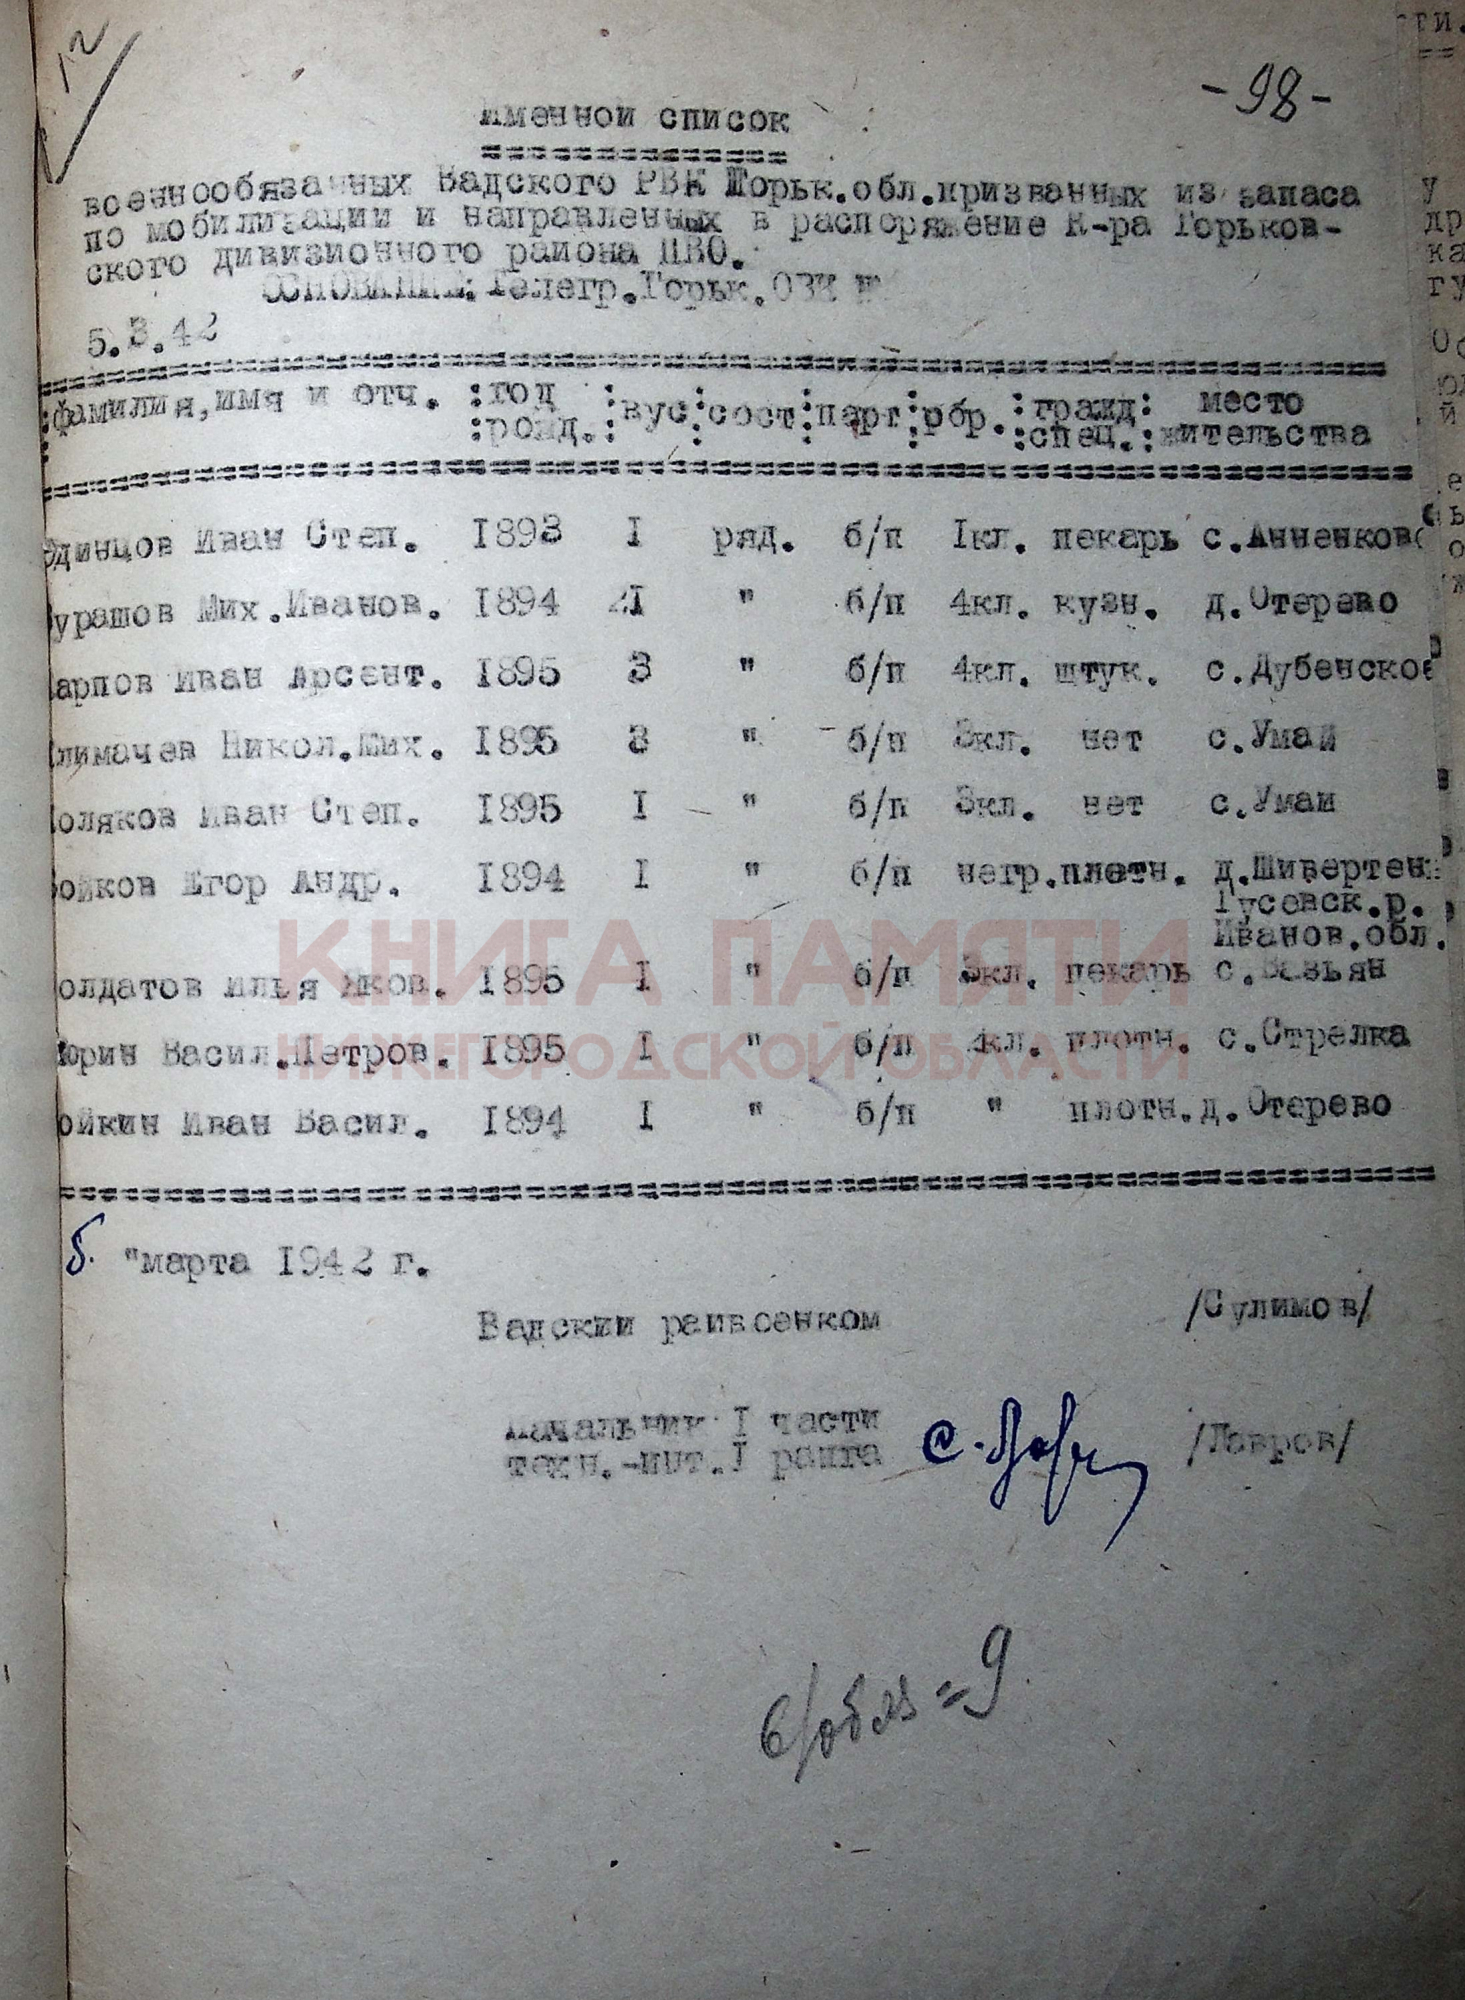 12
-98-
Именной список
военнообязанных Вадского РВК Горьк.обл.призванных из запаса
по мобилизации и направленных в распоряжение К-ра Горьков-
ского дивизионного района ПВО.
ОСНОВАНИЕ: Телегр.Горьк.ОВК №
5.3.42
:фамилия,имя и отч. :год :вус:сост:парт:обр.:гражд: место
:рожд.: :спец.:жительства
Одинцов Иван Степ. 1893 I ряд. б/п 1кл. пекарь с.Анненково
урашов Мих.Иванов. 1894 21 " б/п 4кл. кузн. д.Отерево
арпов Иван Арсент. 1895 3 " б/п 4кл. штук. с.Дубенское
лимачев Никол.Мих. 1895 3 " б/п 3кл. нет с.Умай
оляков Иван Степ. 1895 I " б/п 3кл. нет с.Умай
ойков Егор Андр. 1894 I " б/п негр.плотн. д.Шивертен
Гусевск.р.
Иванов.обл.
КНИГА ПАМЯТИ
олдатов Илья Яков. 1895 I " б/п 3кл. пекарь с.Вазьян
юрин Васил.Петров. 1895 I " б/п 4кл. плотн. с.Стрелка
НИЖЕГОРОДСКОЙ ОБЛАСТИ
ойкин Иван Васил. 1894 I " б/п " плотн. д.Отерево
"марта 1942 г.
Вадский райвоенком /Сулимов/
Начальник I части
техн.-инт.I ранга /Лавров/